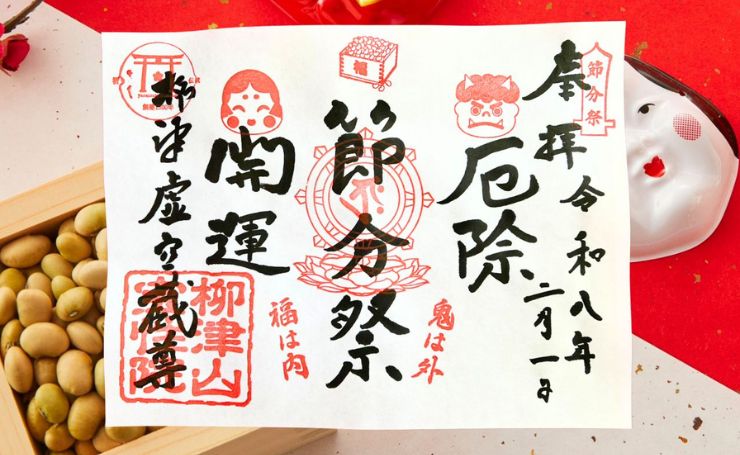 節分祭
奉拝令和八年
二月一日
厄除
福
節分祭
鬼は外
開運
福は内
柳津虚空蔵尊
柳津山